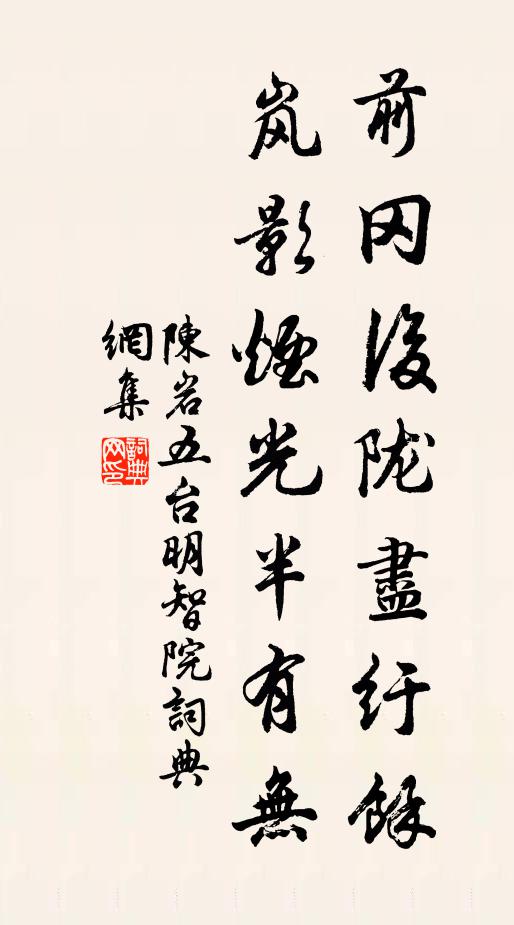 前冈後陇盡纡餘
岚影煙光半有無
陳岩五台明智院詞典
網集
詞典
网印